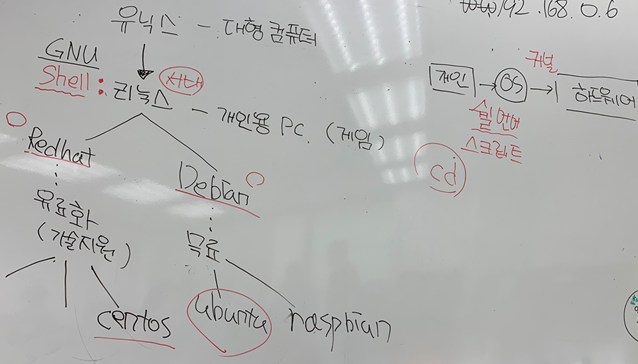 유닉스 - 대형 컴퓨터
192.168.0.6
GNU
Shell : 리눅스 서버
- 개인용 PC. (게임)
개인 → OS → 하드웨어
커널
쉘 언어
스크립트
cd
Redhat
유료화
(기술지원)
centos
Debian
무료
ubuntu
raspbian